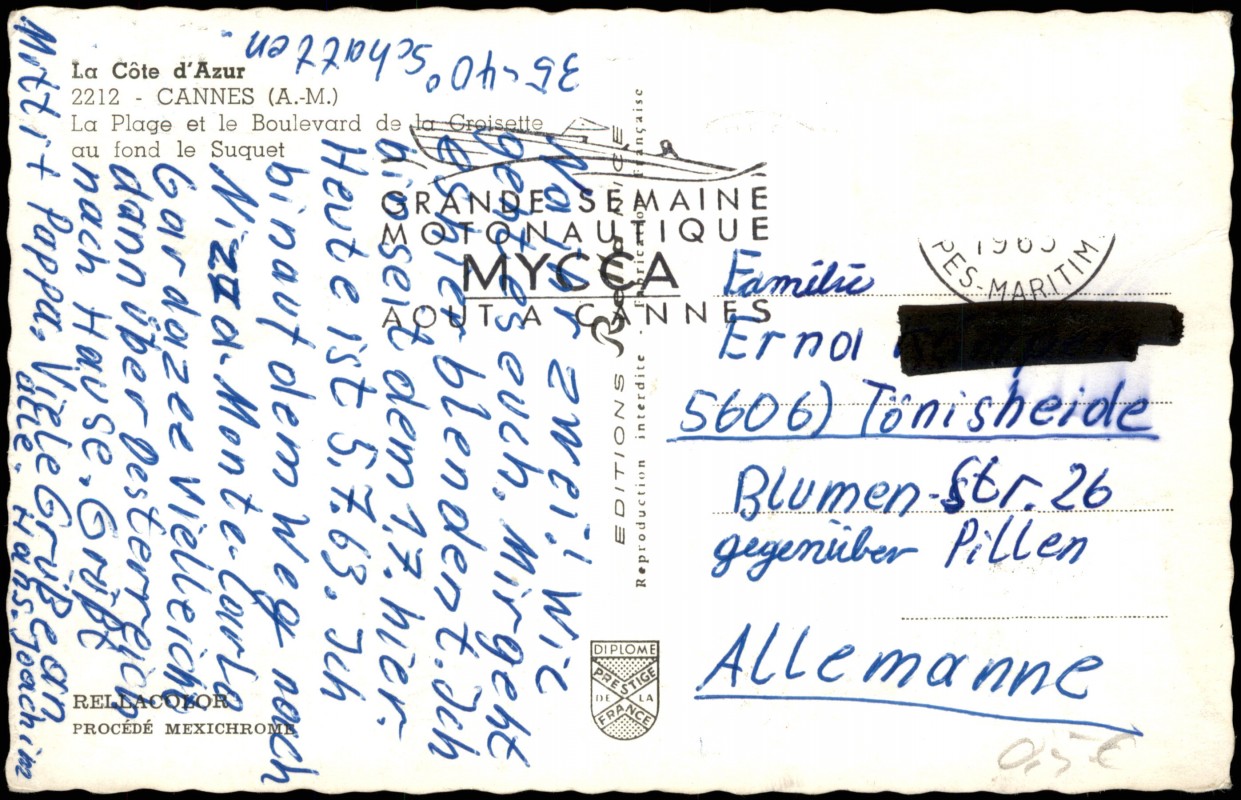 La Côte d'Azur
2212 - CANNES (A.-M.)
La Plage et le Boulevard de la Croisette
au fond le Suquet
35-40° Schatten
Na ihr zwei! Wie
geht es euch. Mir geht
es hier blendent. Ich
bin seit dem 1.7. hier.
Heute ist 5.7.63. Ich
bin auf dem Weg nach
Nizza. Monte-Carlo
Gardazee Vielleicht
dann über Österreich
nach Hause. Grüßt
Mutti + Pappa. Viele Grüße an
alle. Hans-Joachim
GRANDE SEMAINE
MOTONAUTIQUE
MYCCA
AOUT A CANNES
EDITIONS NICE
Reproduction interdite - Fabrication Française
PES-MARITIM
Familie
Erna
5606) Tönisheide
Blumen-Str. 26
gegenüber Pillen
Allemanne
DIPLOME
PRESTIGE
DE LA
FRANCE
RELLACOLOR
PROCÉDÉ MEXICHROME
0,5 €